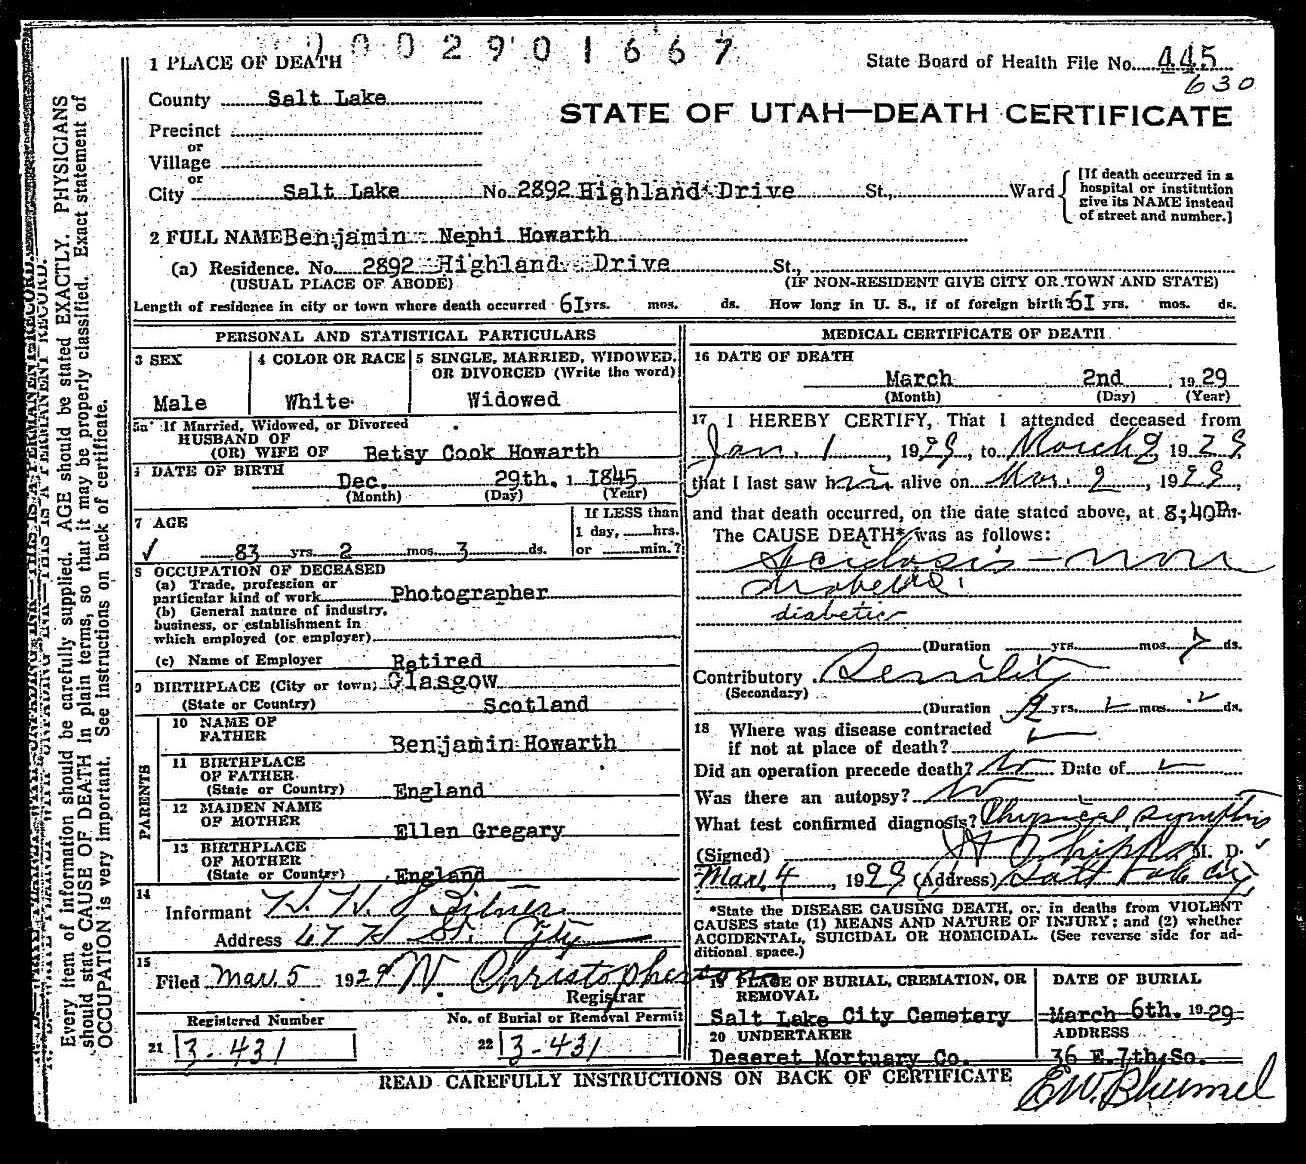 0 0 2 9 0 1 6 6 7
1 PLACE OF DEATH
State Board of Health File No. 445
630
County Salt Lake
STATE OF UTAH—DEATH CERTIFICATE
Precinct
or
Village
or
City Salt Lake No. 2892 Highland Drive St., Ward
[If death occurred in a
hospital or institution
give its NAME instead
of street and number.]
2 FULL NAME Benjamin Nephi Howarth
(a) Residence. No. 2892 Highland Drive St.,
(USUAL PLACE OF ABODE) (IF NON-RESIDENT GIVE CITY OR TOWN AND STATE)
Length of residence in city or town where death occurred 61 yrs. mos. ds. How long in U. S., if of foreign birth? 61 yrs. mos. ds.
PERSONAL AND STATISTICAL PARTICULARS
3 SEX
Male
4 COLOR OR RACE
White
5 SINGLE, MARRIED, WIDOWED,
OR DIVORCED (Write the word)
Widowed
5a If Married, Widowed, or Divorced
HUSBAND OF
(OR) WIFE OF Betsy Cook Howarth
DATE OF BIRTH
Dec. 29th. 1 1845
(Month) (Day) (Year)
7 AGE
83 yrs. 2 mos. 3 ds.
If LESS than
1 day, hrs.
or min.?
8 OCCUPATION OF DECEASED
(a) Trade, profession or
particular kind of work Photographer
(b) General nature of industry,
business, or establishment in
which employed (or employer)
(c) Name of Employer Retired
9 BIRTHPLACE (City or town) Glasgow
(State or Country) Scotland
PARENTS
10 NAME OF
FATHER Benjamin Howarth
11 BIRTHPLACE
OF FATHER
(State or Country) England
12 MAIDEN NAME
OF MOTHER Ellen Gregary
13 BIRTHPLACE
OF MOTHER
(State or Country) England
14
Informant
Address 67 H St. City
15
Filed Mar. 5 1929 W. Christopherson
Registrar
Registered Number
21 3-431
No. of Burial or Removal Permit
22 3-431
MEDICAL CERTIFICATE OF DEATH
16 DATE OF DEATH
March 2nd 1929
(Month) (Day) (Year)
17 I HEREBY CERTIFY, That I attended deceased from
Jan. 1, 1929, to March 2, 1929
that I last saw him alive on Mar. 2, 1929,
and that death occurred, on the date stated above, at 8:40P.m.
The CAUSE DEATH* was as follows:
Acidosis - non
diabetic
diabetic
(Duration yrs. mos. 7 ds.
Contributory Senility
(Secondary)
(Duration yrs. mos. ds.
18 Where was disease contracted
if not at place of death?
Did an operation precede death? No Date of
Was there an autopsy? No
What test confirmed diagnosis? Physical symptoms
(Signed) M. D.
Mar. 4, 1929 (Address) Salt Lake City
*State the DISEASE CAUSING DEATH, or, in deaths from VIOLENT
CAUSES state (1) MEANS AND NATURE OF INJURY; and (2) whether
ACCIDENTAL, SUICIDAL OR HOMICIDAL. (See reverse side for ad-
ditional space.)
19 PLACE OF BURIAL, CREMATION, OR
REMOVAL
Salt Lake City Cemetery
DATE OF BURIAL
March 6th. 1929
20 UNDERTAKER
Deseret Mortuary Co.
ADDRESS
36 E. 7th So.
READ CAREFULLY INSTRUCTIONS ON BACK OF CERTIFICATE
Every item of information should be carefully supplied. AGE should be stated EXACTLY. PHYSICIANS
should state CAUSE OF DEATH in plain terms, so that it may be properly classified. Exact statement of
OCCUPATION is very important. See instructions on back of certificate.